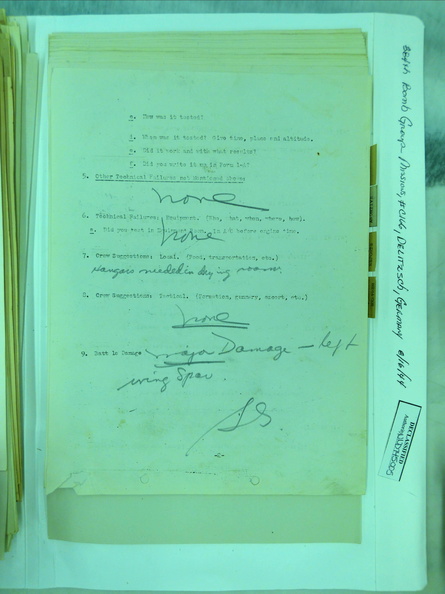 c. How was it tested?
d. When was it tested? Give time, place and altitude.
e. Did it burn and with what results?
f. Did you write it up in Form 1-A?
5. Other Technical Failures not Mentioned Above:
none
6. Technical Failures: Equipment. (Who, what, when, where, how).
a. Did you test in Equipment Room, in A/C before engine time.
none
7. Crew Suggestions: Local. (Food, transportation, etc.)
Hangars needed in drying room.
8. Crew Suggestions: Tactical. (Formation, gunnery, escort, etc.)
none
9. Battle Damage major Damage — left
wing Spar.
-2-
Bomb Group Missions, DELITZSCH, Germany 8/16/44
DECLASSIFIED
Authority